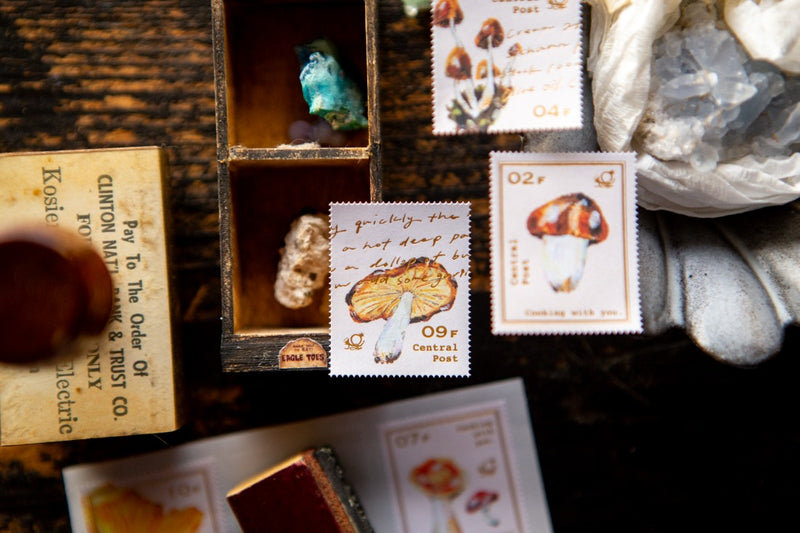 Post
04F
02F
Central
Post
Cooking with you.
y quickly the
a hot deep pa
a dollop of bu
09F
Central
Post
EAGLE TOES
Pay To The Order Of
CLINTON NAT'L BANK & TRUST CO.
FO
ONLY
Kosier
Electric
07F
10F